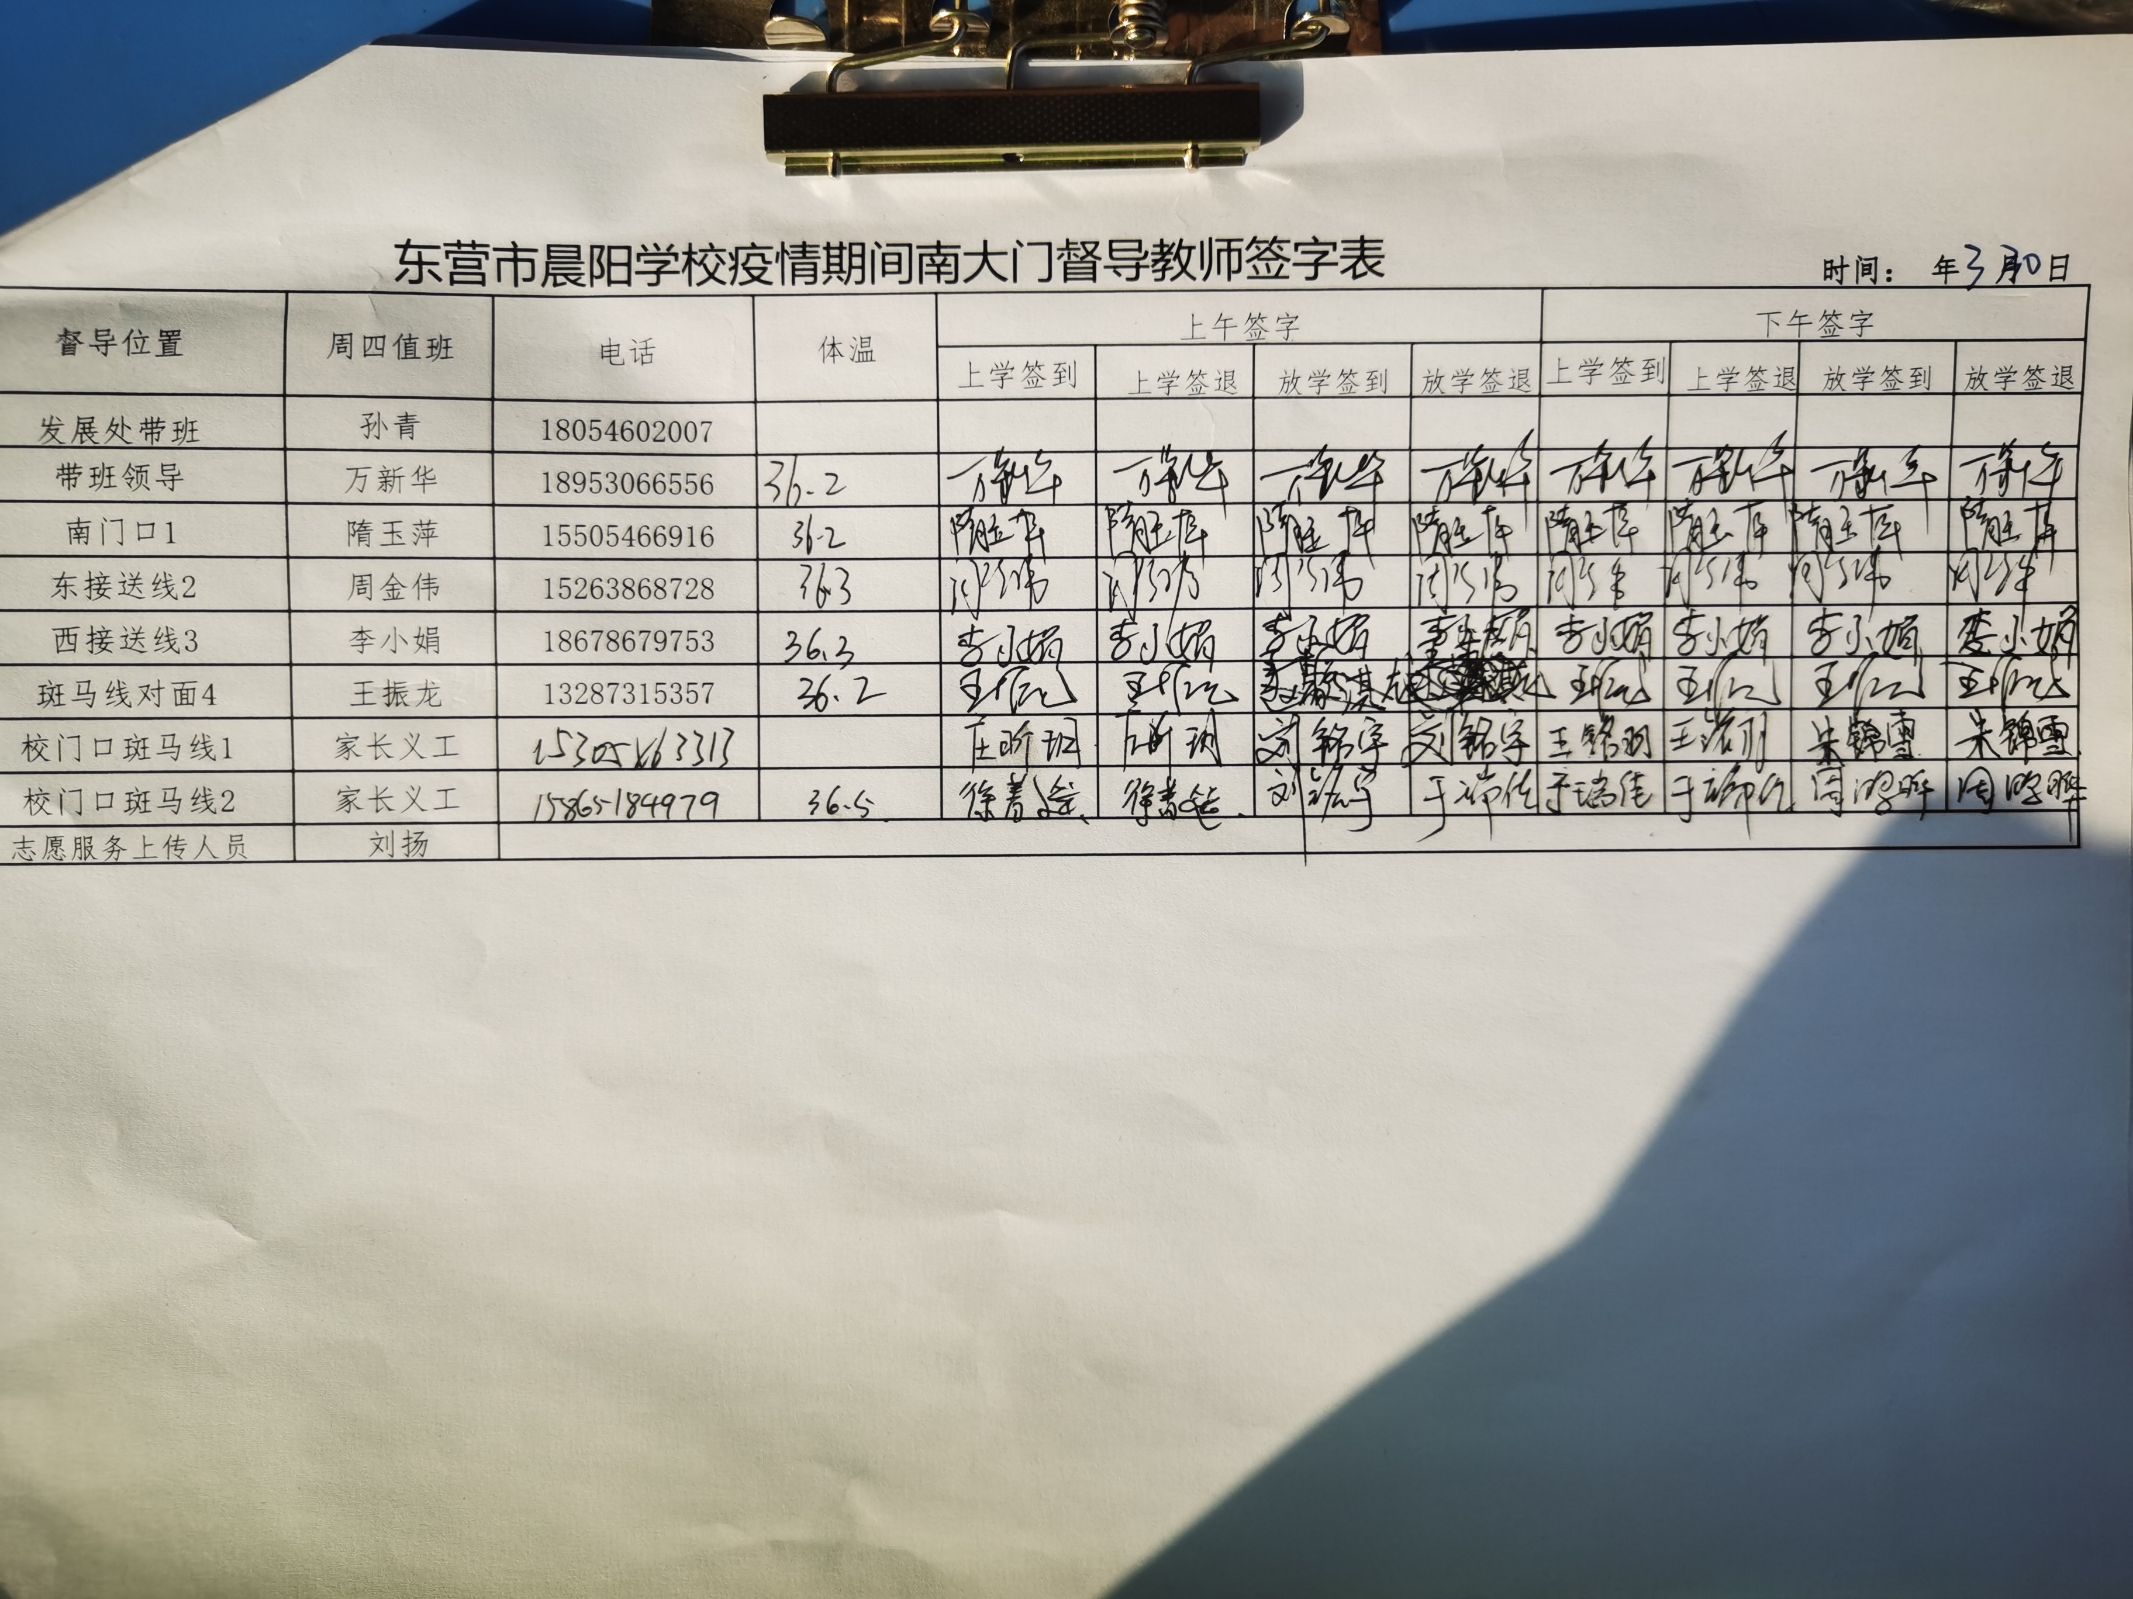 东营市晨阳学校疫情期间南大门督导教师签字表
时间： 年3月30日
督导位置 周四值班 电话 体温 上午签字 下午签字
上学签到 上学签退 放学签到 放学签退 上学签到 上学签退 放学签到 放学签退
发展处带班 孙青 18054602007
带班领导 万新华 18953066556 36.2 万新华 万新华 万新华 万新华 万新华 万新华 万新华 万新华
南门口1 隋玉萍 15505466916 36.2 隋玉萍 隋玉萍 隋玉萍 隋玉萍 隋玉萍 隋玉萍 隋玉萍 隋玉萍
东接送线2 周金伟 15263868728 36.3 周金伟 周金伟 周金伟 周金伟 周金伟 周金伟 周金伟 周金伟
西接送线3 李小娟 18678679753 36.3 李小娟 李小娟 李小娟 李小娟 李小娟 李小娟 李小娟 李小娟
斑马线对面4 王振龙 13287315357 36.2 王振龙 王振龙 王振龙 王振龙 王振龙 王振龙
校门口斑马线1 家长义工 刘铭宇 刘铭宇 朱锦雪 朱锦雪
校门口斑马线2 家长义工 15865184979 36.5 刘铭宇 于瑞佳 于瑞佳 于瑞佳
志愿服务上传人员 刘扬